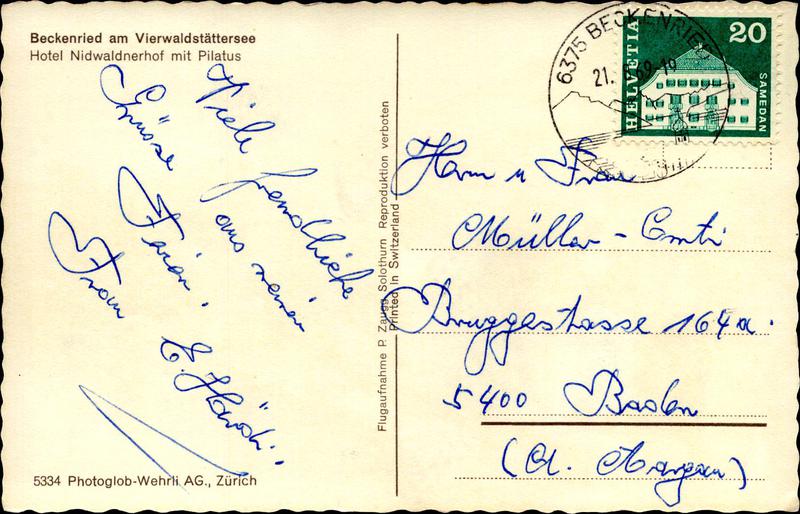 Beckenried am Vierwaldstättersee
Hotel Nidwaldnerhof mit Pilatus
Viele freundliche
Grüsse aus meinen
Ferien.
Frau E. Hänsli.
5334 Photoglob-Wehrli AG., Zürich
Flugaufnahme P. Zaugg, Solothurn Reproduktion verboten
Printed in Switzerland
6375 BECKENRIED
21. 69-19
HELVETIA
20
SAMEDAN
Herrn u Frau
Müller-
Bruggestrasse 164a.
5400 Baden
(Ct. Aargau)